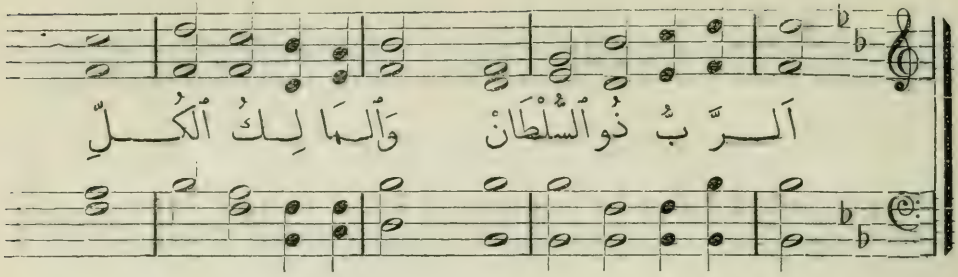 اَلــرَّ بُّ ذُو ٱلسُّلْطَانْ وَٱلــمَا لِــكُ ٱلْكُــلِّ